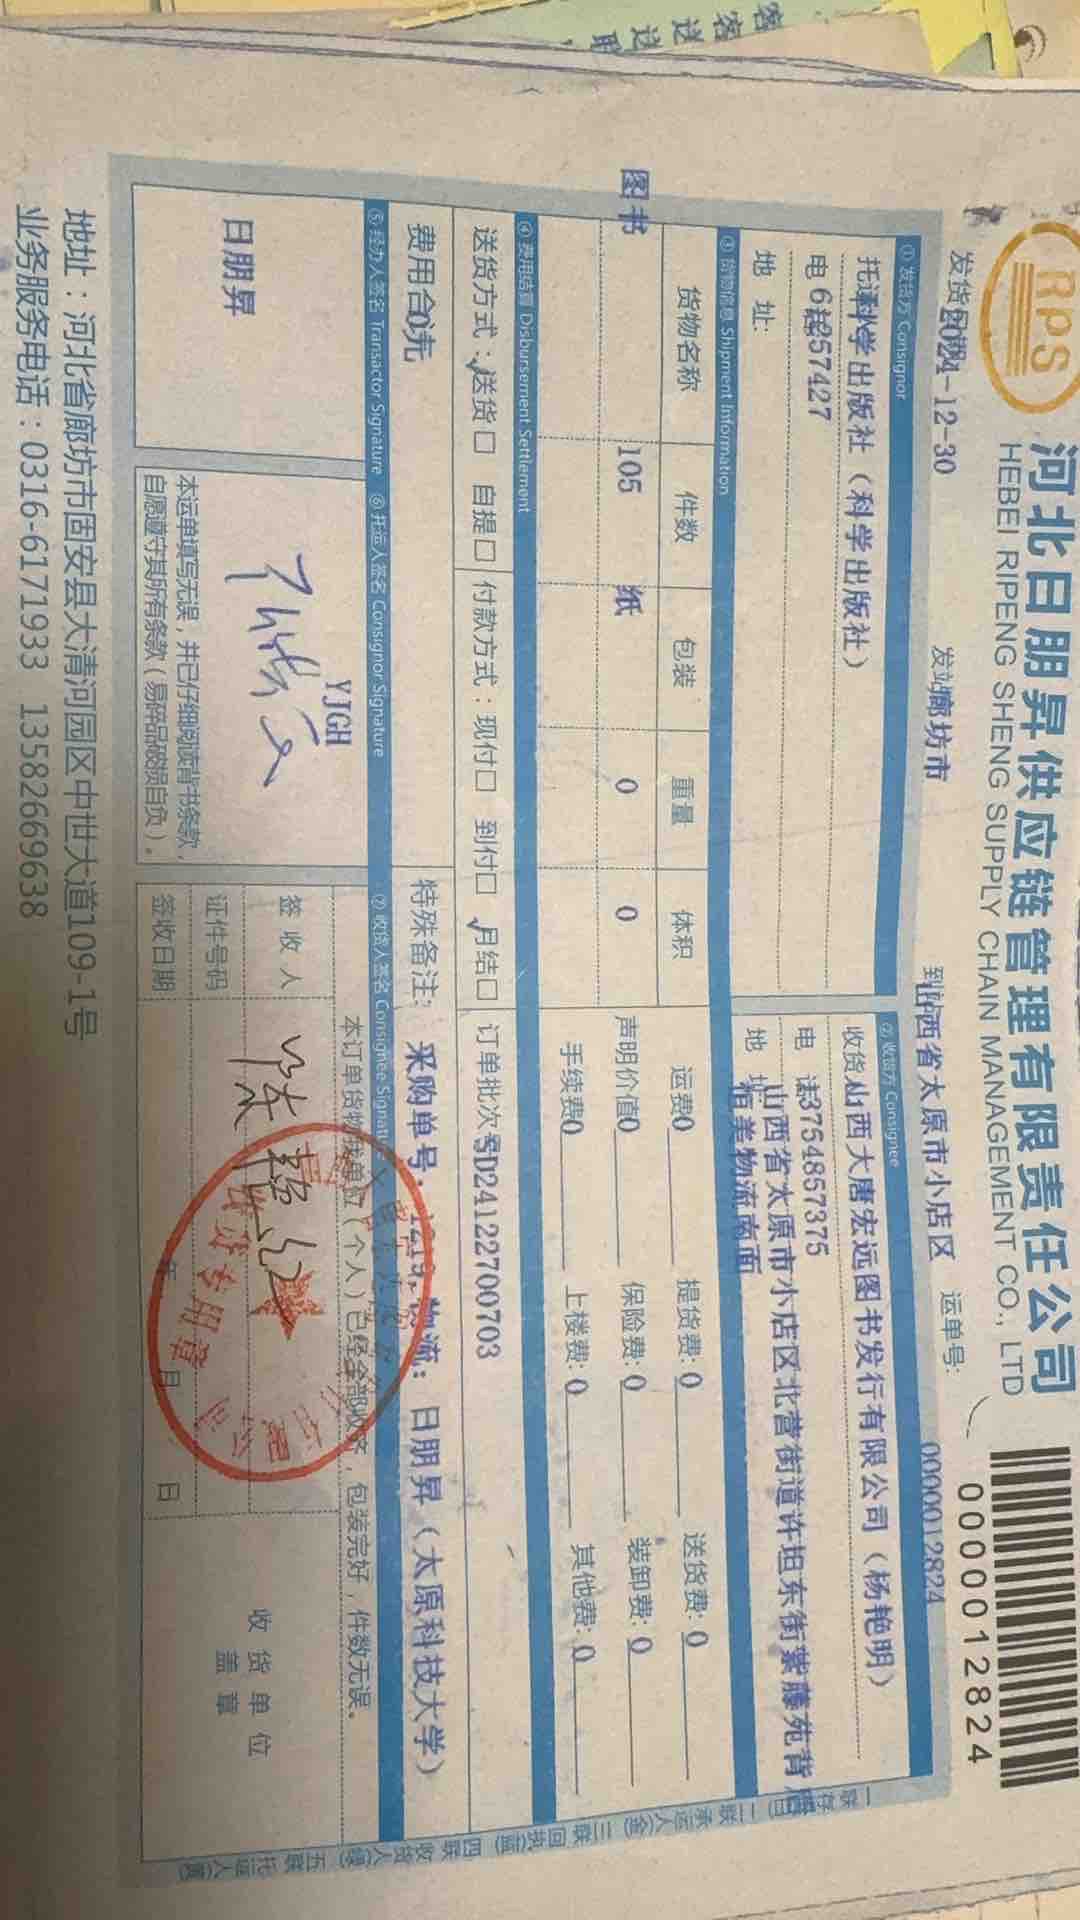 RPS
河北日朋昇供应链管理有限责任公司
HEBEI RIPENG SHENG SUPPLY CHAIN MANAGEMENT CO., LTD
0000012824
发货日期 2024-12-30 发站 廊坊市 到站 山西省太原市小店区 运单号: 0000012824
① 发货方 Consignor
托运人 科学出版社（科学出版社）
电 话 61257427
地 址:
② 收货方 Consignee
收货人 山西大唐宏远图书发行有限公司（杨艳明）
电 话 13754857375
地 址 山西省太原市小店区北营街道许坦东街紫藤苑背后
佰美物流南面
③ 货物信息 Shipment Information
货物名称 件数 包装 重量 体积
图书 105 纸 0 0
运费0 提货费: 0 送货费: 0
声明价值0 保险费: 0 装卸费: 0
手续费0 上楼费: 0 其他费: 0
④ 费用结算 Disbursement Settlement
送货方式：√送货口 自提口 付款方式：现付口 到付口 √月结口 订单批次号 SD2412270070​3
费用合计 0元
特殊备注: 采购单号: 1219, 物流: 日朋昇（太原科技大学）
⑤ 经办人签名 Transactor Signature ⑥ 托运人签名 Consignor Signature ⑦ 收货人签名 Consignee Signature
日朋昇
YJGH
本运单填写无误，并已仔细阅读背书条款，
自愿遵守其所有条款（易碎品破损自负）。
本订单货物我单位（个人）已经全部收齐，包装完好，件数无误。
签 收 人
证件号码
签收日期 年 月 日
收 货 单 位
盖 章
专用章
一联存根(白) 二联承运人(金) 三联回执(蓝) 四联收货人(绿) 五联托运人(黄)
地址：河北省廊坊市固安县大清河园区中世大道109-1号
业务服务电话：0316-6171933 13582669638